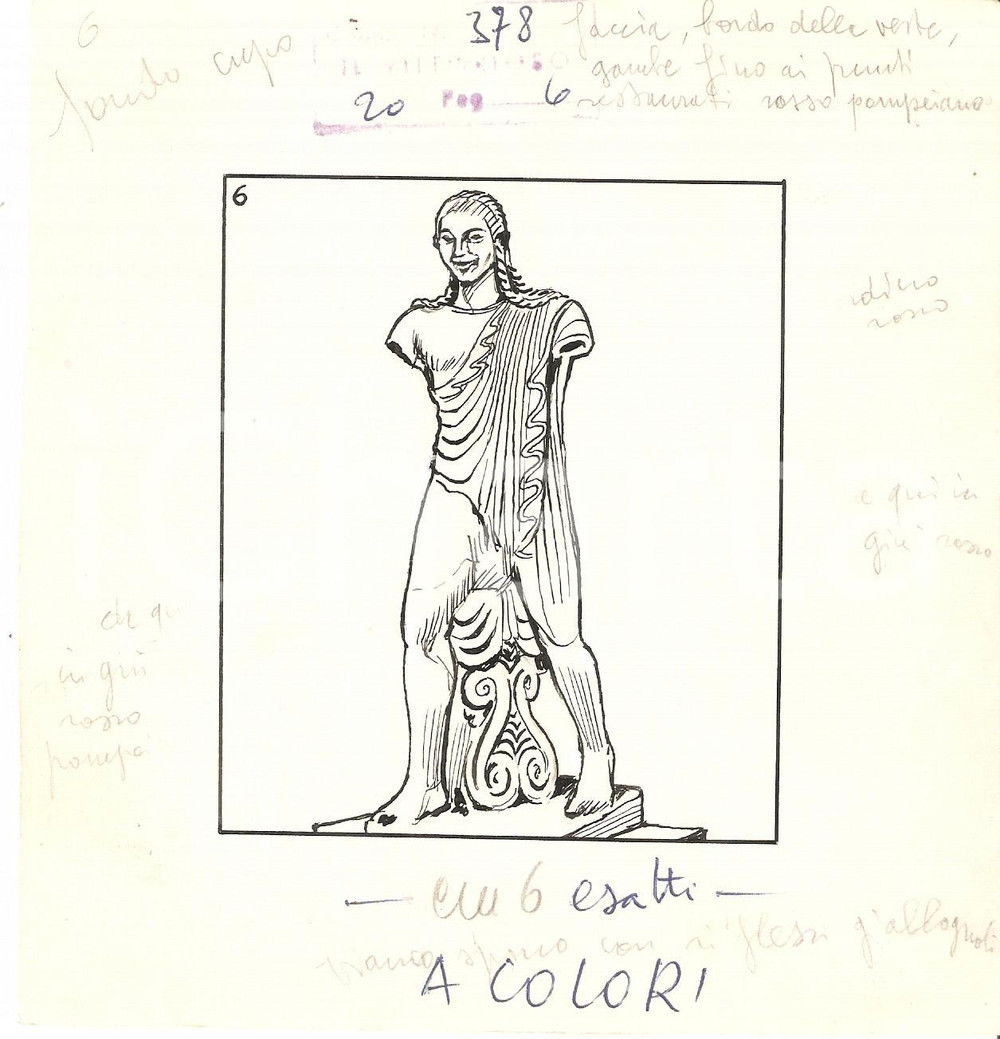 6
fondo cupo
378
faccia, bordo della veste,
gambe fino ai punti
restaurati rosso pompeiano
IL VITTORIOSO
20 Pag 6
6
rosso
e qui in
giù rosso
in giù
rosso
— cm 6 esatti —
bianco sporco con riflessi giallognoli
A COLORI